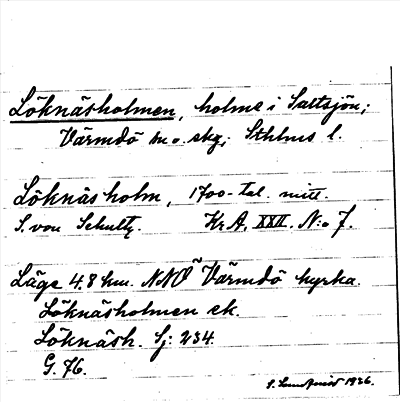 Löknäsholmen, holme i Saltsjön;
Värmdö sn o. skg; Sthlms l.
Löknäs holm, 1700-tal. mitt.
S. von Schultz. Kr. A. XXII. N:o 7.
Läge 4.8 km. NNO Värmdö kyrka.
Löknäsholmen ek.
Löknäsh. Sj: 234.
G. 76.
1936.